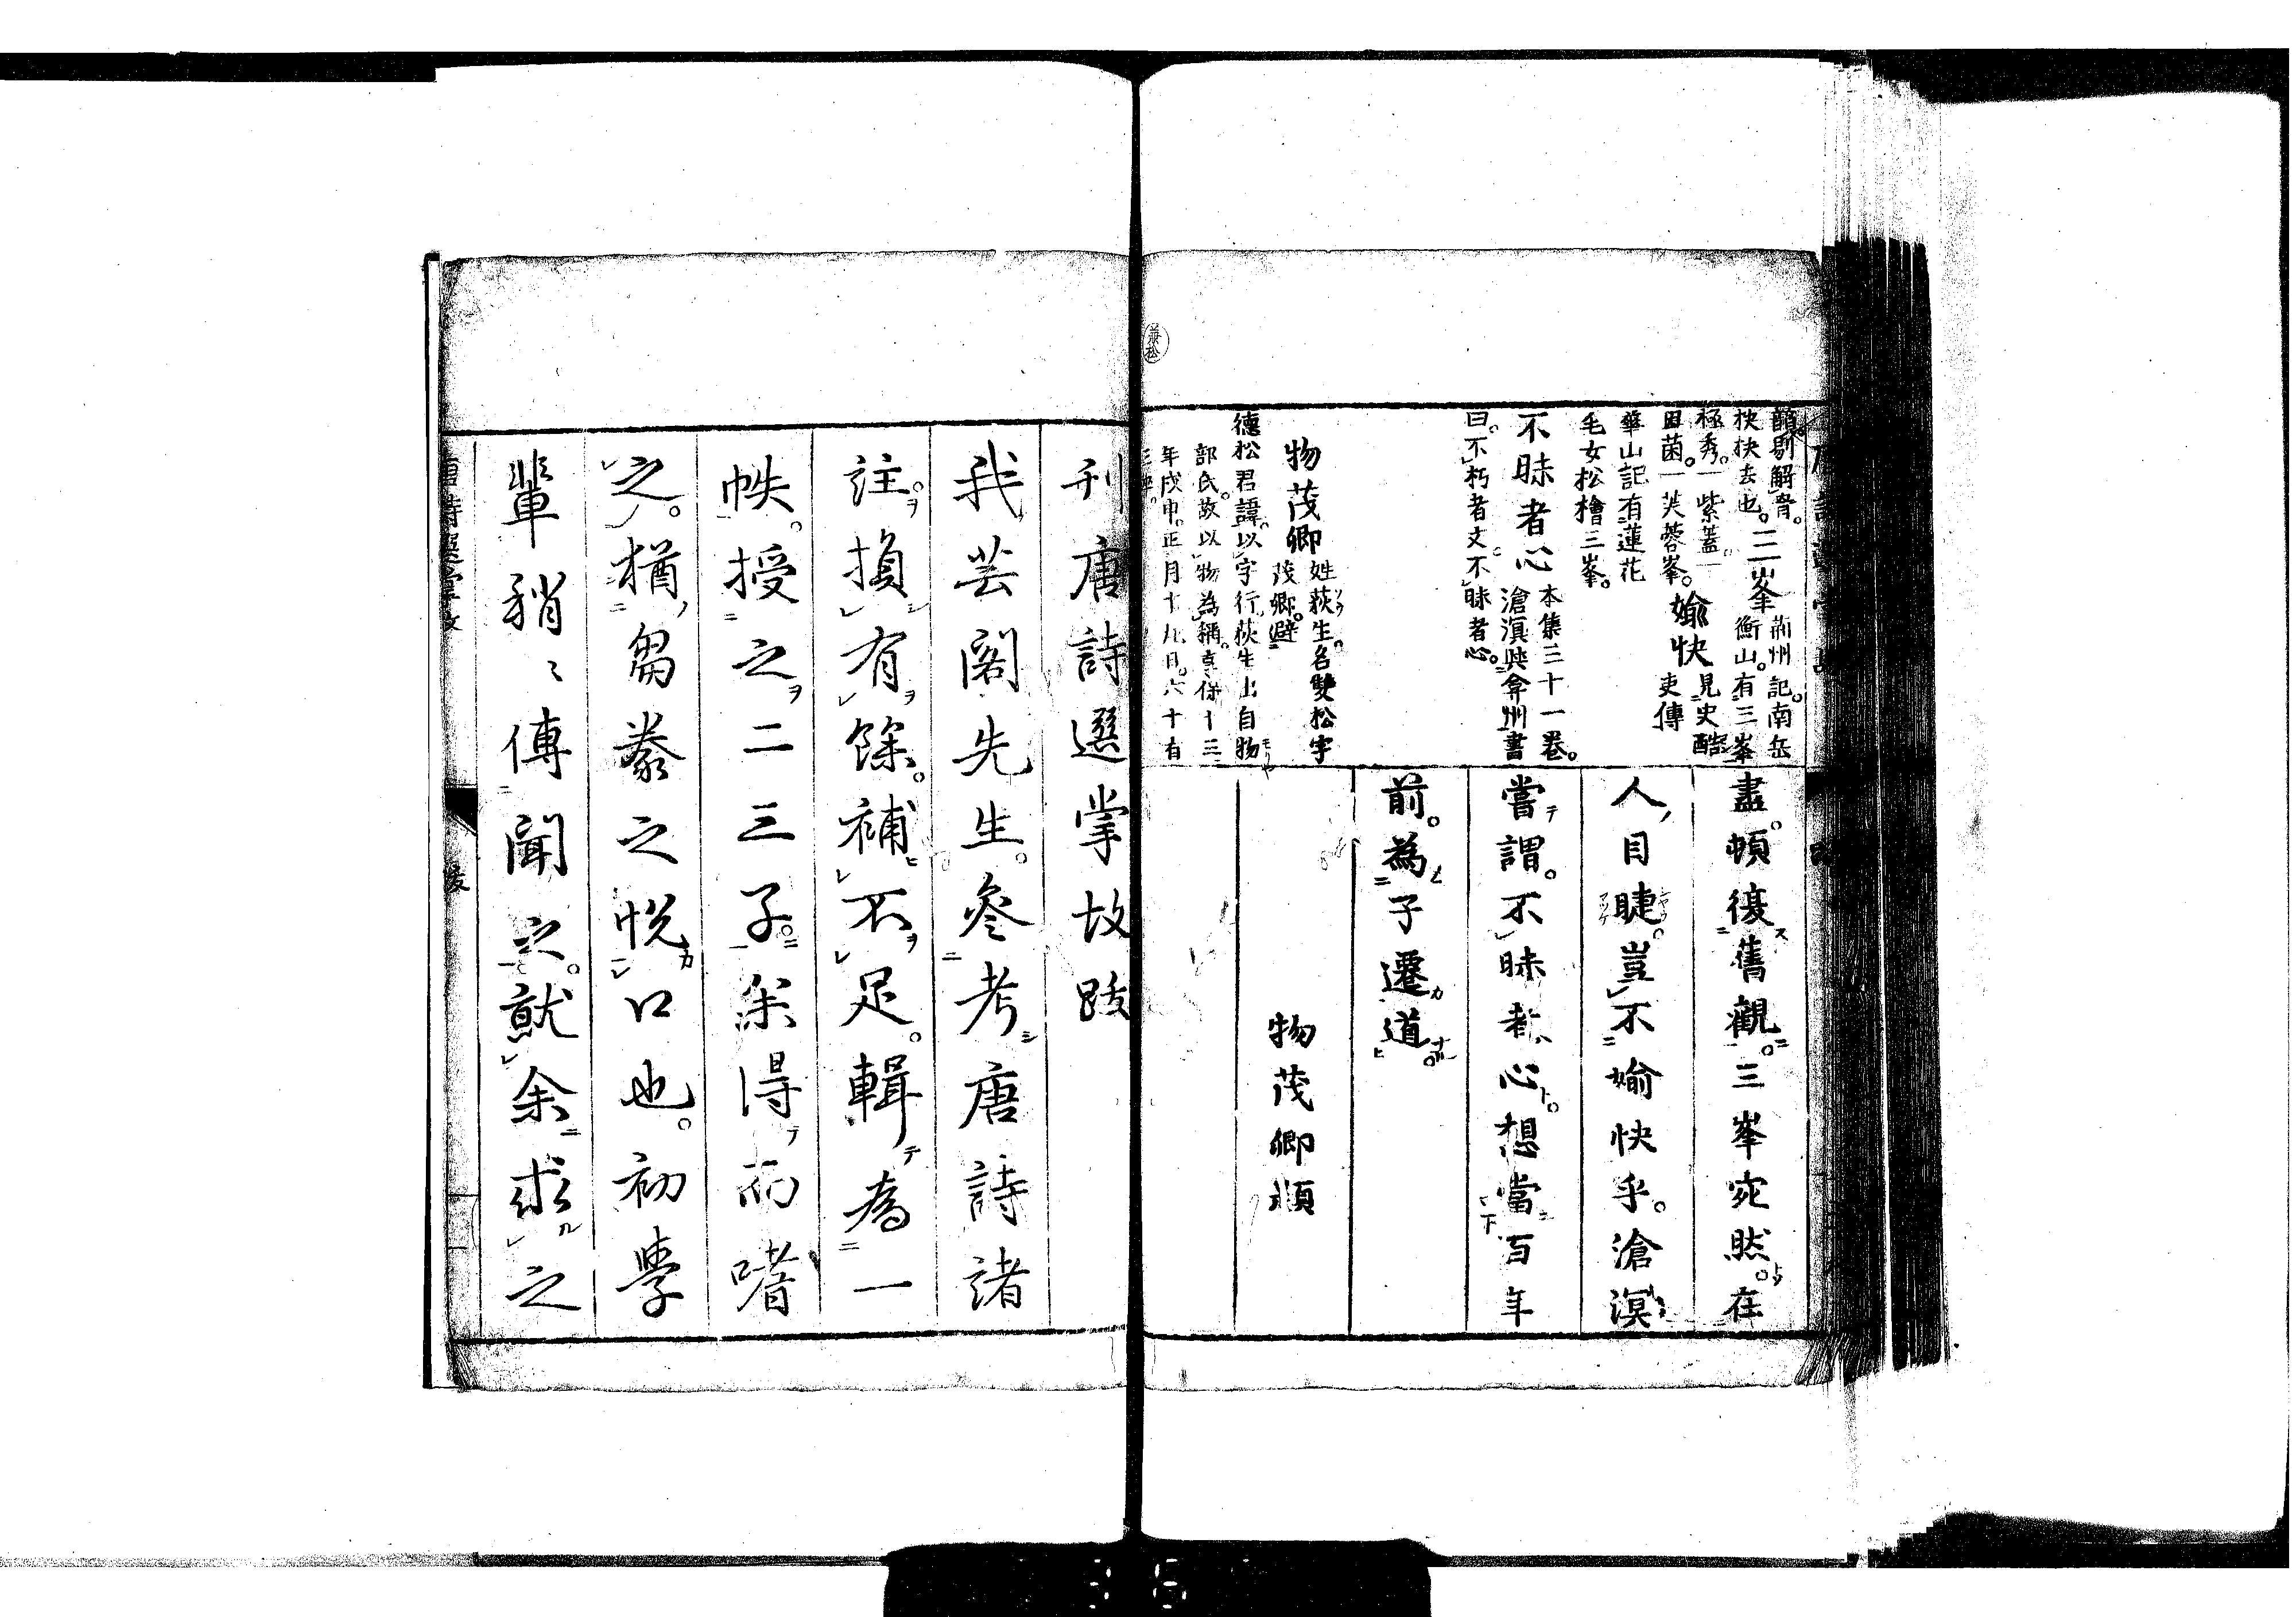 韻。剔解脊。
抉抉去也。三峯荊州記。南岳
衡山。有三峯
極秀。一紫蓋。一
囷菌。一芙蓉峯。媮快見史酷
吏傳
華山記有蓮花
毛女松檜三峯。
不昧者心本集三十一卷。
滄溟與弇州書
曰。不朽者文。不昧者心。
物茂卿姓荻生。名雙松字
茂卿。避
德松君諱。以字行荻生出自物
部氏。故以物為稱。享保十三
年戊申。正月十九日。六十有
三卒。
盡。頓復舊觀。三峯宛然。在
人目睫。豈不媮快乎。滄溟
嘗謂。不昧者心。想當百年
前。為子遷道。
物茂卿題
刊唐詩選掌故跋
我芸閣先生。參考唐詩諸
註。損有餘。補不足。輯為一
帙。授之二三子。余得而嗜
之。猶芻豢之悅口也。初學
輩稍〻傳聞之。就余求之
唐詩選掌故
跋